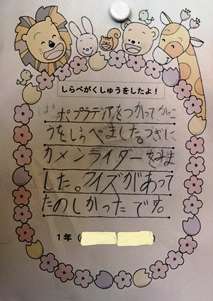 しらべがくしゅうをしたよ！
ポプラディアをつかって
うをしらべました。つぎに
カメンライダーをみま
した。クイズがあって
たのしかったです。
1年（　　　）